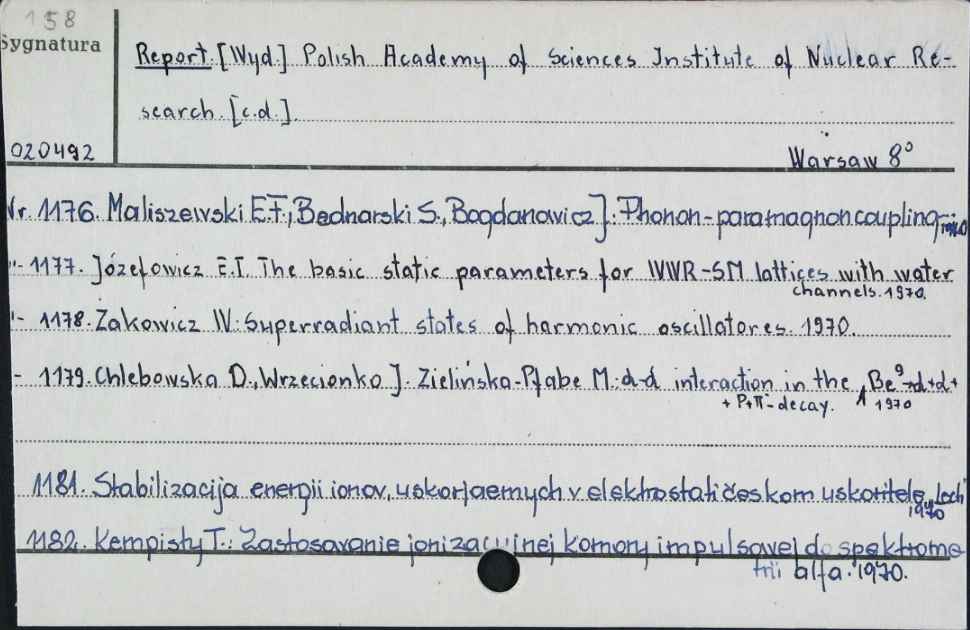 158
Sygnatura
Report. [Wyd.] Polish Academy of Sciences Institute of Nuclear Re-
search. [c.d.].
020492
Warsaw 8°
Nr. 1176. Maliszewski E.F., Bednarski S., Bogdanowicz J. Phonon-paramagnon coupling. 1970
"- 1177. Józefowicz E.T. The basic static parameters for WWR-SM lattices with water
channels. 1970.
"- 1178. Zakowicz W. Superradiant states of harmonic oscillatores. 1970.
- 1179. Chlebowska D., Wrzecionko J. Zielińska-Pfabe M.: d-d interaction in the ΛBe⁹→d+d+
+ P+π⁻-decay. 1970
1181. Stabilizacija energii ionov, uskorjaemych v elektrostatičeskom uskoritele „Lech"
1970
1182. Kempisty T.: Zastosowanie jonizacyjnej komory impulsowej do spektrome
trii alfa. 1970.